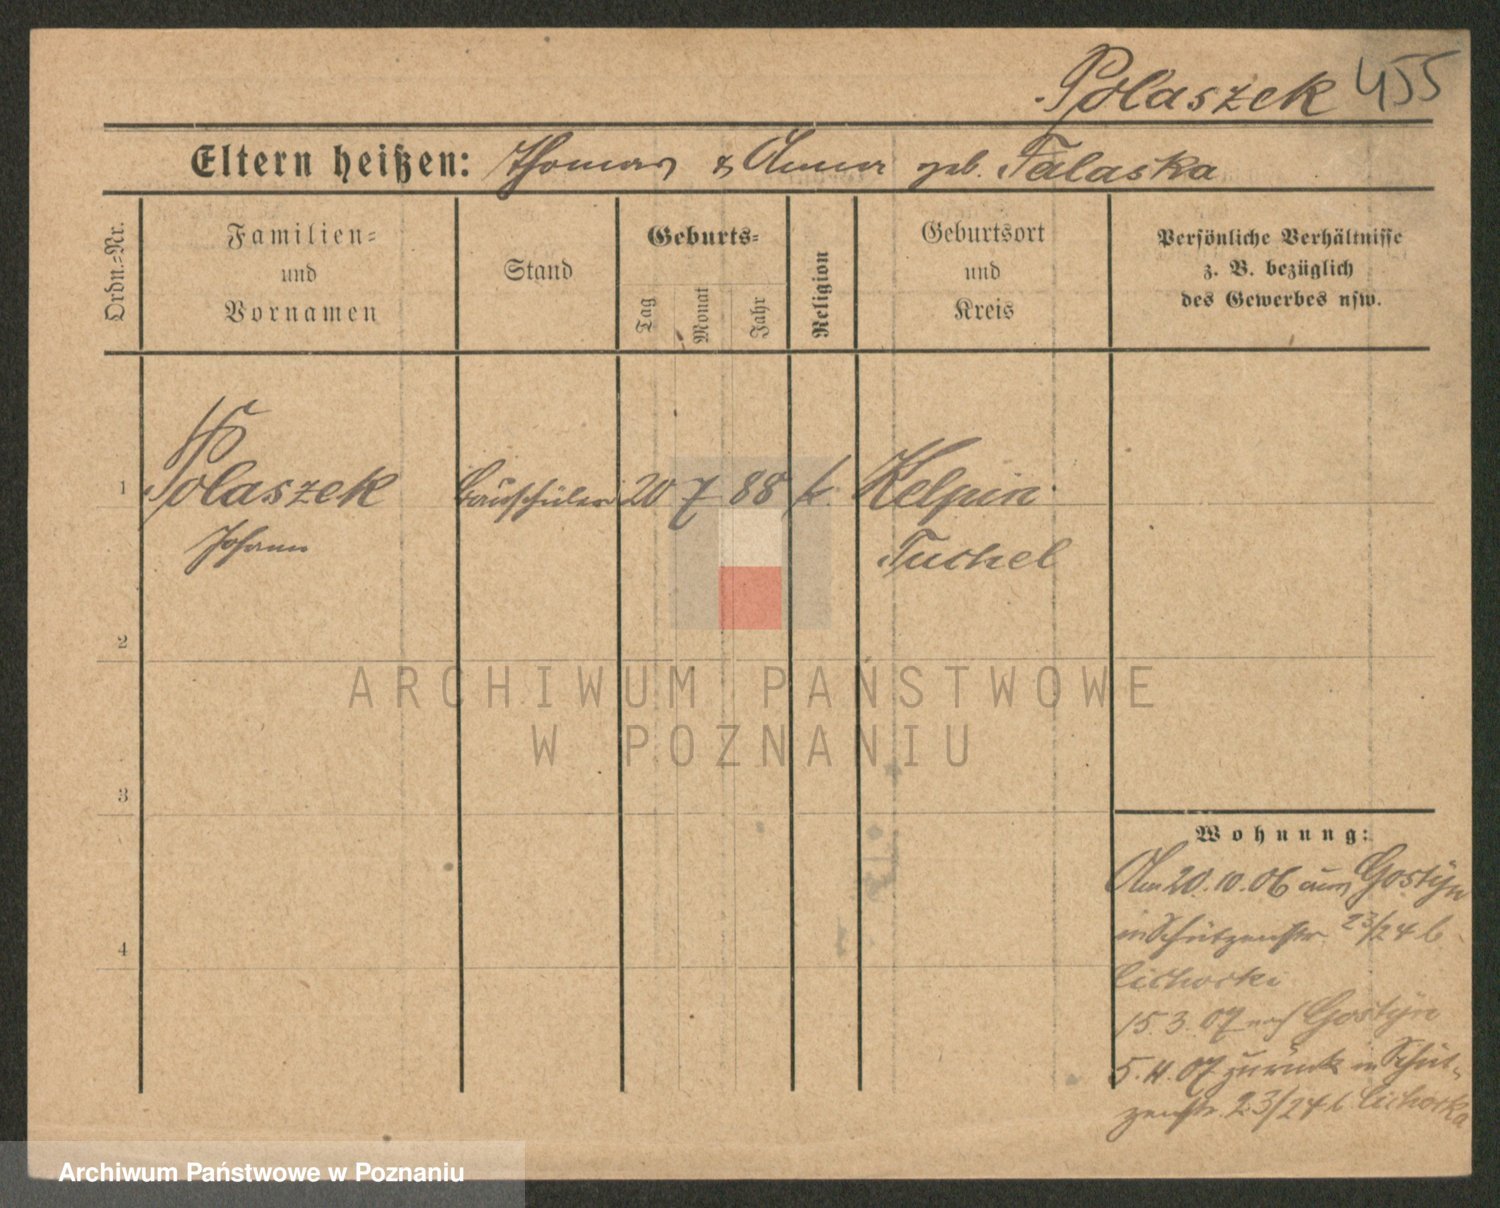 Polaszek 455
Eltern heißen: Thomas & Anna geb. Talaska
Ordn.=Nr.
Familien=
und
Vornamen
Stand
Geburts=
Tag
Monat
Jahr
Religion
Geburtsort
und
Kreis
Persönliche Verhältnisse
z. B. bezüglich
des Gewerbes usw.
1
Polaszek
Johann
Bauschüler
20 7 88
k.
Kelpin
Tuchel
2
3
4
ARCHIWUM PAŃSTWOWE
W POZNANIU
Wohnung:
Am 20.10.06 aus Gostyn
in Schützenstr 23/24 b
Cichocki
15.3.07 nach Gostyn
5.4.07 zurück in Schüt-
zenstr. 23/24 b. Cichocka
Archiwum Państwowe w Poznaniu